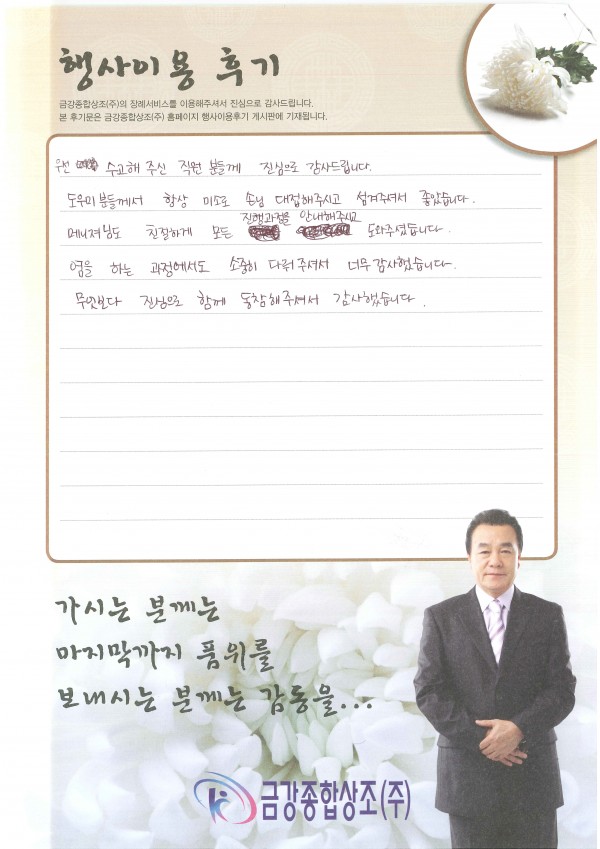 행사이용 후기
금강종합상조(주)의 장례서비스를 이용해주셔서 진심으로 감사드립니다.
본 후기문은 금강종합상조(주) 홈페이지 행사이용후기 게시판에 기재됩니다.
우선 수고해 주신 직원 분들께 진심으로 감사드립니다.
도우미분들께서 항상 미소로 손님 대접해주시고 섬겨주셔서 좋았습니다.
진행과정을 안내해주시고
메니저님도 친절하게 모든 도와주셨습니다.
염을 하는 과정에서도 소중히 다뤄주셔서 너무 감사했습니다.
무엇보다 진심으로 함께 동참해주셔서 감사했습니다.
가시는 분께는
마지막까지 품위를
보내시는 분께는 감동을...
금강종합상조(주)